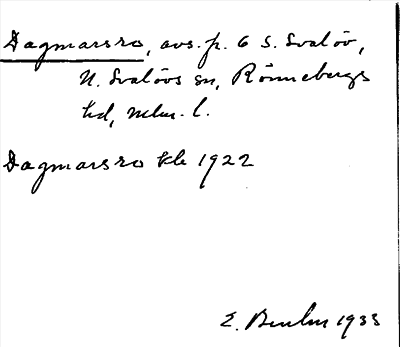 Dagmarsro, avs. fr. 6 S. Svalöv,
N. Svalövs sn, Rönnebergs
hd, Mlm. l.
Dagmarsro kk 1922
E. 1933